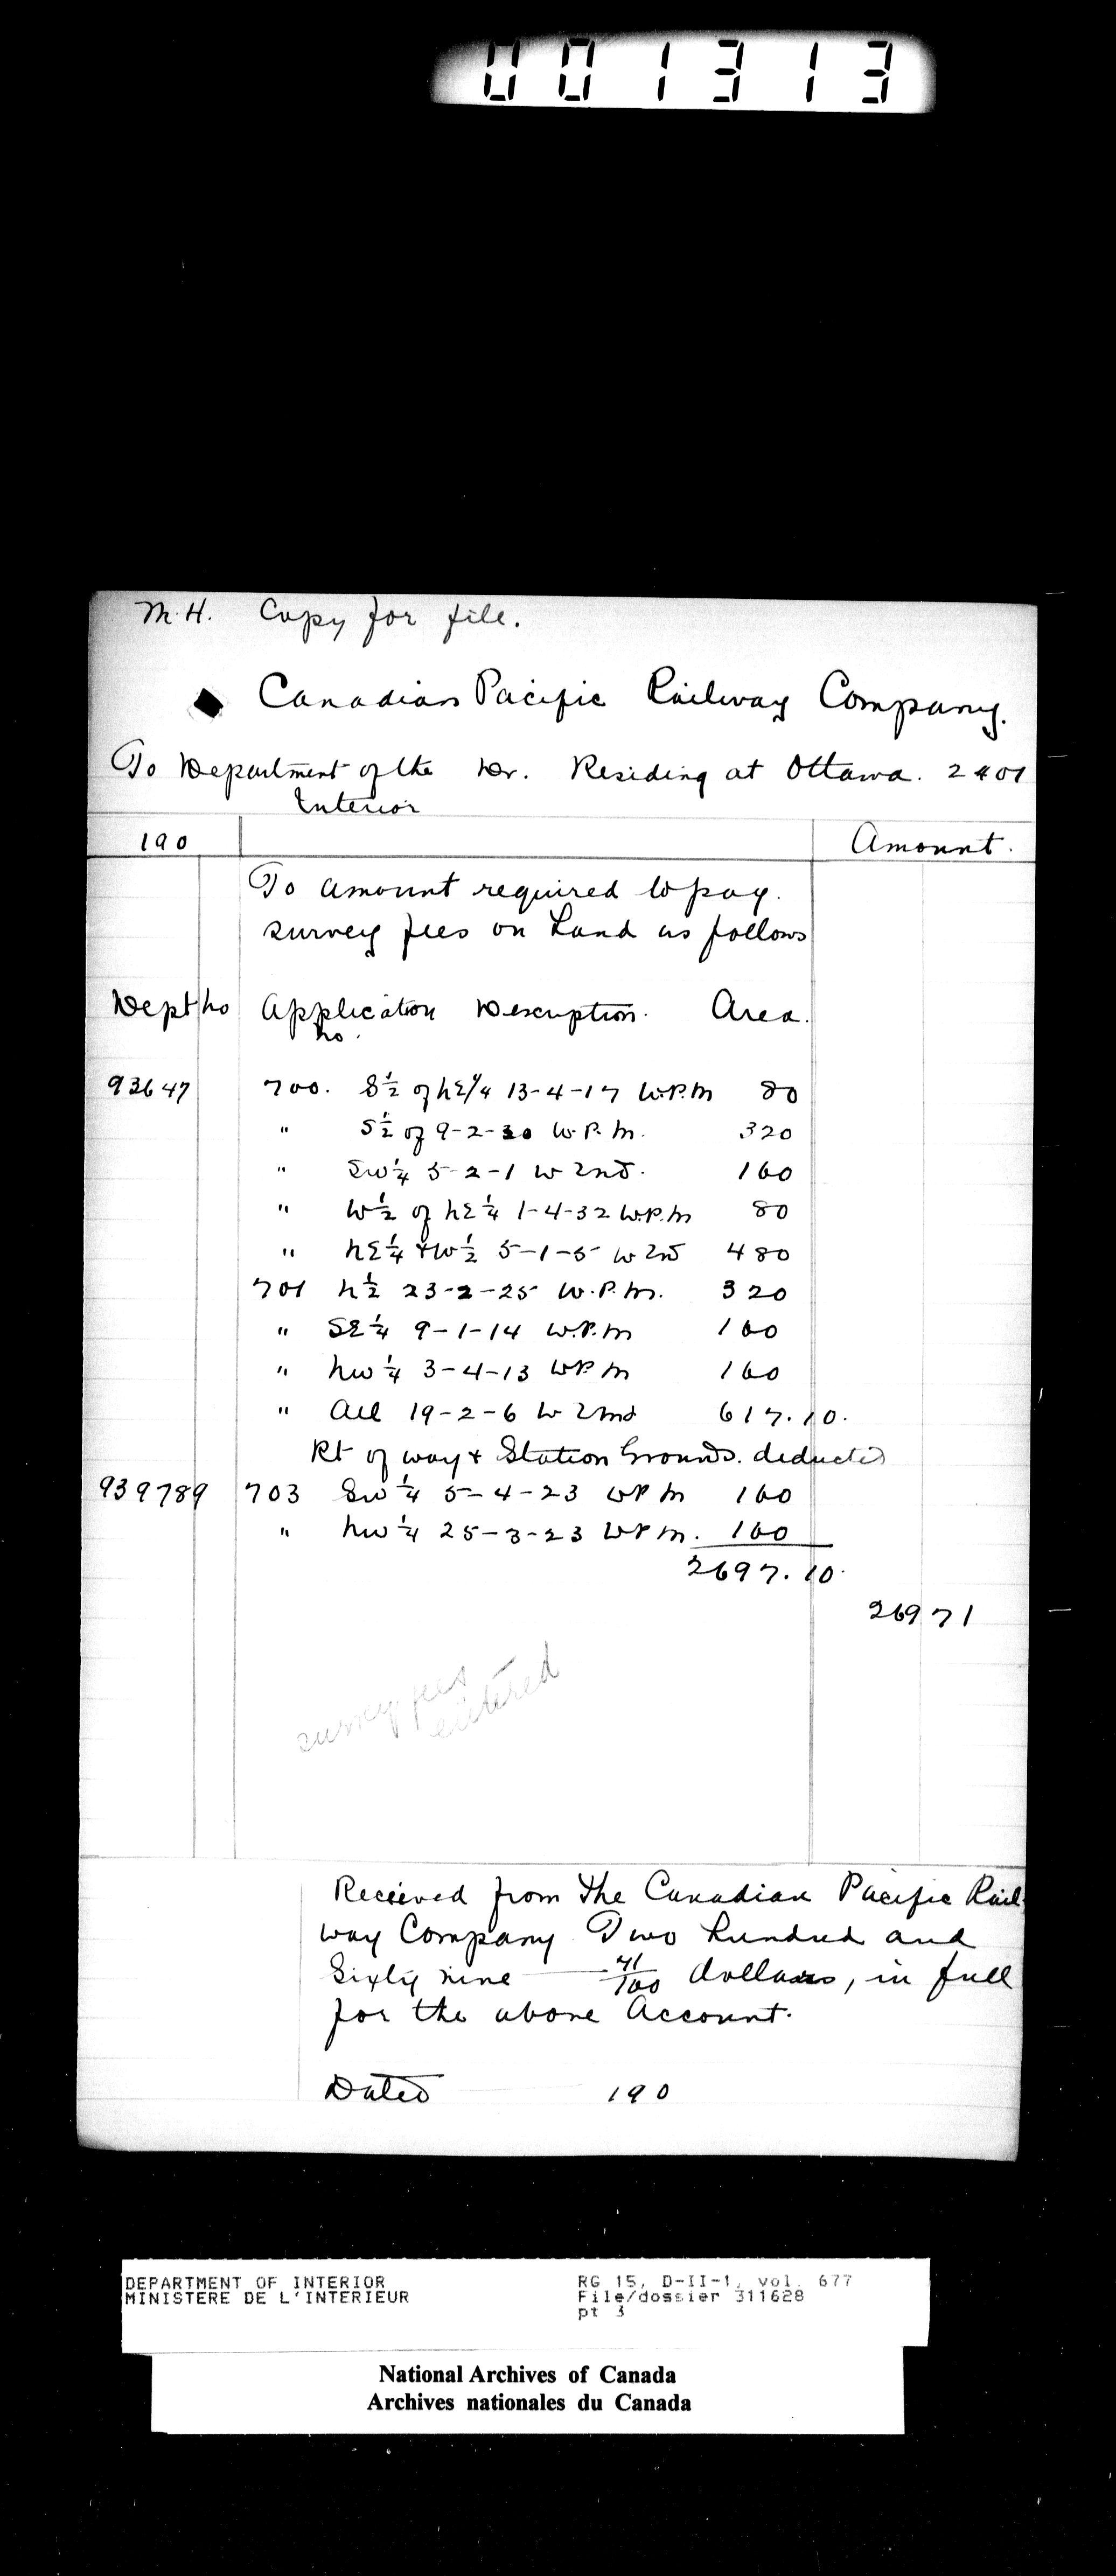 001313
M.H. Copy for file.
Canadian Pacific Railway Company.
To Department of the Dr. Residing at Ottawa. 2401
Interior
190 Amount.
To amount required to pay.
survey fees on Land as follows
Dept no Application Description. Area.
no.
93647 700. S½ of NE1/4 13-4-17 W.P.M 80
" S½ of 9-2-30 W.P.M. 320
" SW¼ 5-2-1 W 2nd. 160
" W½ of NE¼ 1-4-32 W.P.M 80
" NE¼ + W½ 5-1-5 W 2nd 480
701 N½ 23-2-25 W.P.M. 320
" SE¼ 9-1-14 W.P.M 160
" NW¼ 3-4-13 WPM 160
" All 19-2-6 W 2nd 617.10.
Rt of way + Station Grounds. deducted
939789 703 SW¼ 5-4-23 WPM 160
" NW¼ 25-3-23 WPM. 160
2697.10.
269 71
survey fees
entered
Received from the Canadian Pacific Rail-
way Company Two hundred and
Sixty nine 71/100 dollars, in full
for the above Account.
Dated 190
DEPARTMENT OF INTERIOR RG 15, D-II-1, vol. 677
MINISTERE DE L'INTERIEUR File/dossier 311628
pt 3
National Archives of Canada
Archives nationales du Canada